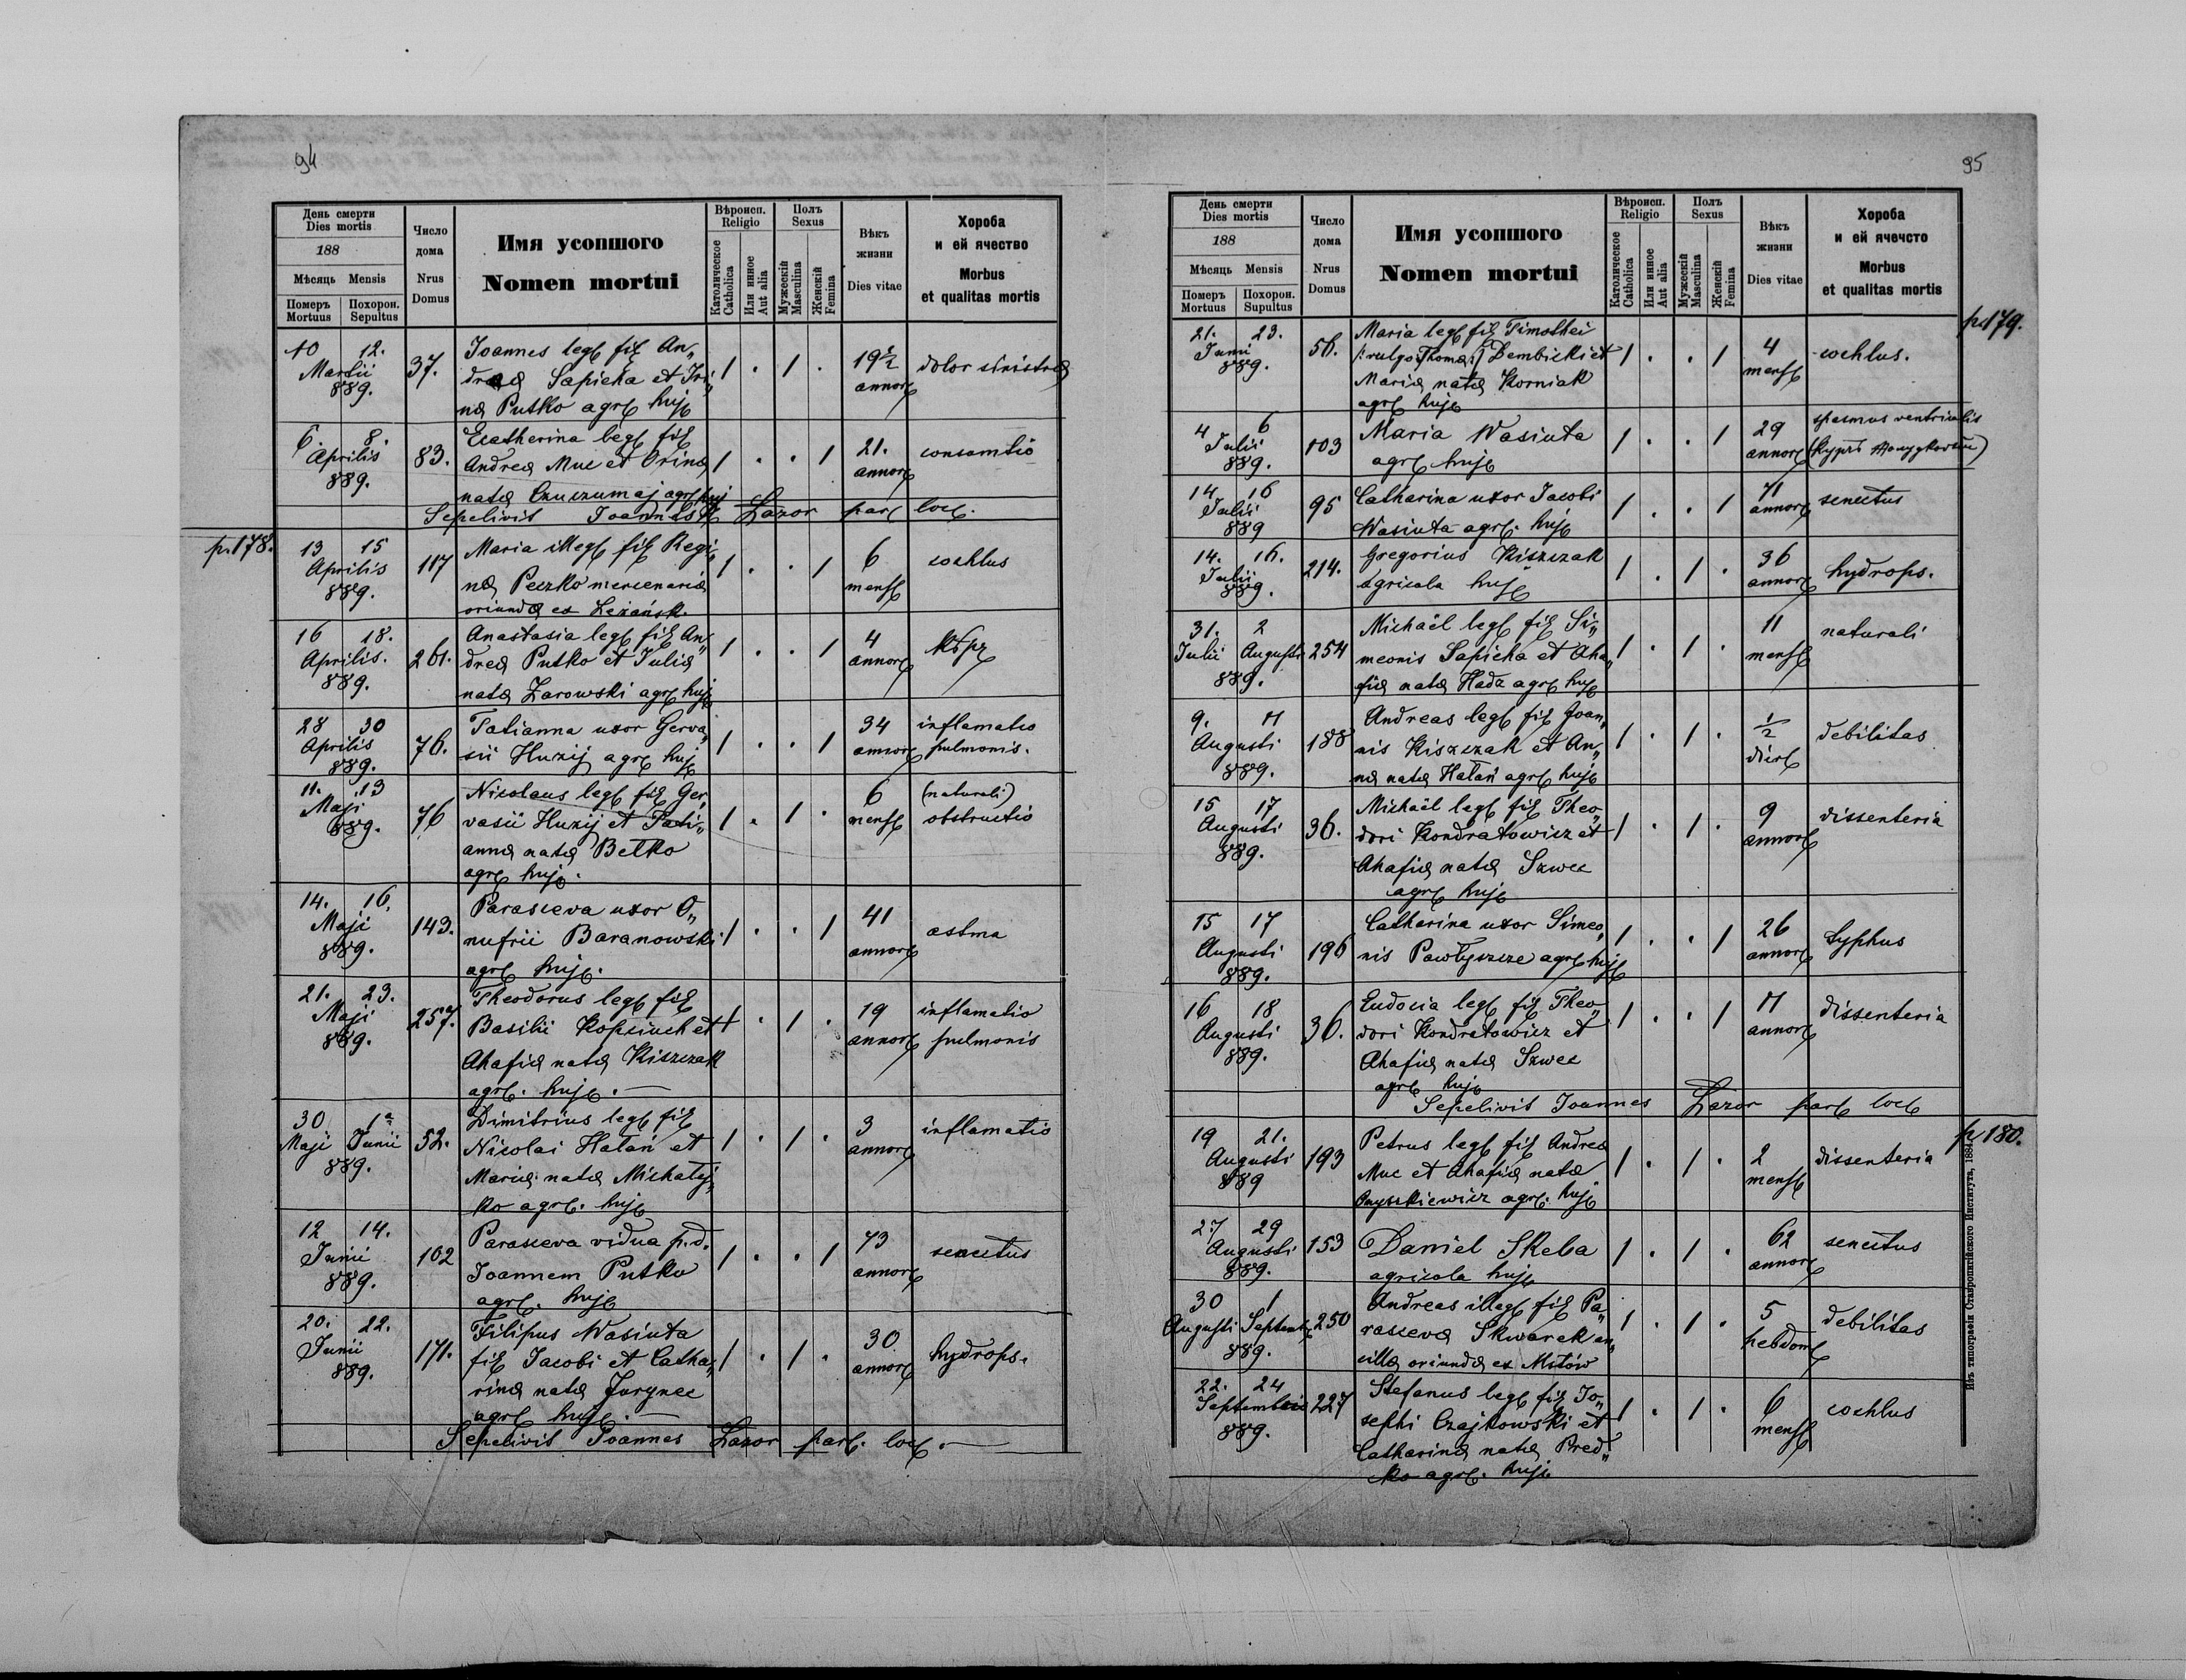 94
День смерти
Dies mortis
188
Мѣсяць Mensis
Померъ Похорон.
Mortuus Sepultus
Число
дома
Nrus
Domus
Имя усопшого
Nomen mortui
Вѣроисп.
Religio
Католическое
Catholica
Или инное
Aut alia
Полъ
Sexus
Мужескій
Masculina
Женскій
Femina
Вѣкъ
жизни
Dies vitae
Хороба
и ей ячество
Morbus
et qualitas mortis
10 12. Martii 889. 37. Joannes legl fil An„
dreæ Sapieha et Iri„
næ Putko agrl hujl
1 . 1 . 19½ annorl dolor sinistræ
6. 8. Aprilis 889. 83. Ecatherina legl fil
Andreæ Muc et Orinæ
natæ Czuczumaj agrl huj
1 . . 1 21. annorl consamtio
Sepelivit Joannes Lazor parl locl.
p. 178.
13 15 Aprilis 889. 117 Maria illegl fil Regi„
næ Peczko mercenariæ
oriundæ ex Leżańsk.
1 . . 1 6 mensl cochlus
16 18. Aprilis. 889. 261. Anastasia legl fil An„
dreæ Putko et Juliæ
natæ Żarowski agrl hujl
1 . . 1 4 annorl
28 30 Aprilis 889. 76. Tatianna uxor Gerva„
sii Huzij agrl hujl
1 . . 1 34 annorl inflamatio
pulmonis.
11. 13 Maji 889. 76 Nicolaus legl fil Ger„
vasii Huzij et Tati„
annæ natæ Bełko
agrl hujl.
1 . 1 . 6 mensl (naturali)
obstructio
14. 16. Maji 889. 143. Parasceva uxor O„
nufrii Baranowski
agrl hujl.
1 . . 1 41 annorl astma
21. 23. Maji 889. 257. Theodorus legl fil
Basilii Kopciuch et
Ahafiæ natæ Kiszczak
agrl. hujl.—
1 . 1 . 19 annorl inflamatio
pulmonis
30 Maji 1ª Junii 889. 52. Dimitrius legl fil
Nicolai Hałań et
Mariæ natæ Michałyj„
ko agrl. hujl
1 . 1 . 3 annorl inflamatio
12 14. Junii 889. 102 Parasceva vidua p.d.
Joannem Putko
agrl. hujl
1 . . 1 73 annorl senectus
20. 22. Junii 889. 171. Filipus Wasiuta
fil Jacobi et Catha„
rinæ natæ Jurynec
agrl hujl.—
1 . 1 . 30 annorl hydrops.
Sepelivit Joannes Lazor parl. locl.—
95
День смерти
Dies mortis
188
Мѣсяць Mensis
Померъ Похорон.
Mortuus Supultus
Число
дома
Nrus
Domus
Имя усопшого
Nomen mortui
Вѣроисп.
Religio
Католическое
Catholica
Или инное
Aut alia
Полъ
Sexus
Мужескій
Masculina
Женскій
Femina
Вѣкъ
жизни
Dies vitae
Хороба
и ей ячечсто
Morbus
et qualitas mortis
p. 179.
21. 23. Junii 889. 56. Maria legl fil Timothei
/:vulgo Thomæ:/ Dembicki et
Mariæ natæ Korniak
agrl hujl
1 . . 1 4 mensl cochlus.
4 6 Julii 889. 103 Maria Wasiuta
agrl hujl
1 . . 1 29 annorl spasmus ventriculis
14 16 Julii 889 95 Catharina uxor Jacobi
Wasiuta agrl. hujl
1 . . 1 71 annorl senectus
14. 16. Julii 889. 214. Gregorius Kiszczak
agricola hujl
1 . 1 . 36 annorl hydrops.
31. Julii 2 Augusti 889. 254 Michaël legl fil Si„
meonis Sapieha et Aha„
fiæ natæ Hadz agrl hujl
1 . 1 . 11 mensl naturali
9. 11 Augusti 889. 188 Andreas legl fil Joan„
nis Kiszczak et An„
næ natæ Hałań agrl hujl
1 . 1 . ½ dierl debilitas
15 17 Augusti 889. 36. Michaël legl fil Theo„
dori Kondratowicz et
Ahafiæ natæ Szwec
agrl hujl
1 . 1 . 9 annorl dissenteria
15 17 Augusti 889. 196 Catharina uxor Simeo„
nis Pawłyszcze agrl hujl
1 . . 1 26 annorl typhus
16 18 Augusti 889. 36. Eudocia legl fil Theo„
dori Kondratowicz et
Ahafiæ natæ Szwec
agrl hujl
1 . . 1 11 annorl dissenteria
Sepelivit Joannes Lazor parl locl
p 180.
19 21. Augusti 889 193 Petrus legl fil Andreæ
Muc et Ahafiæ natæ
Onyszkiewicz agrl. hujl
1 . 1 . 2 mensl dissenteria
27 29 Augusti 889. 153 Daniel Skeba
agricola hujl
1 . 1 . 62 annorl senectus
30 Augusti 1 Septembr 889. 250 Andreas illegl fil Pa„
rascevæ Skwarek an„
cillæ oriundæ ex Mstów
1 . 1 . 5 hebdoml debilitas
22. 24 Septembris 889. 227 Stefanus legl fil Jo„
sephi Czajkowski et
Catharinæ natæ Pred„
ko agrl. hujl.
1 . 1 . 6 mensl cochlus
Изъ типографіи Ставропигійского Института, 1884.